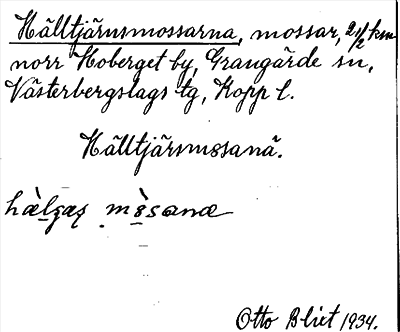 Källtjärnsmossarna, mossar, 2 1/2 km
norr Hoberget by, Grangärde sn,
Västerbergslags tg, Kopp l.
Källtjärsmosanä.
Otto Blixt 1934.